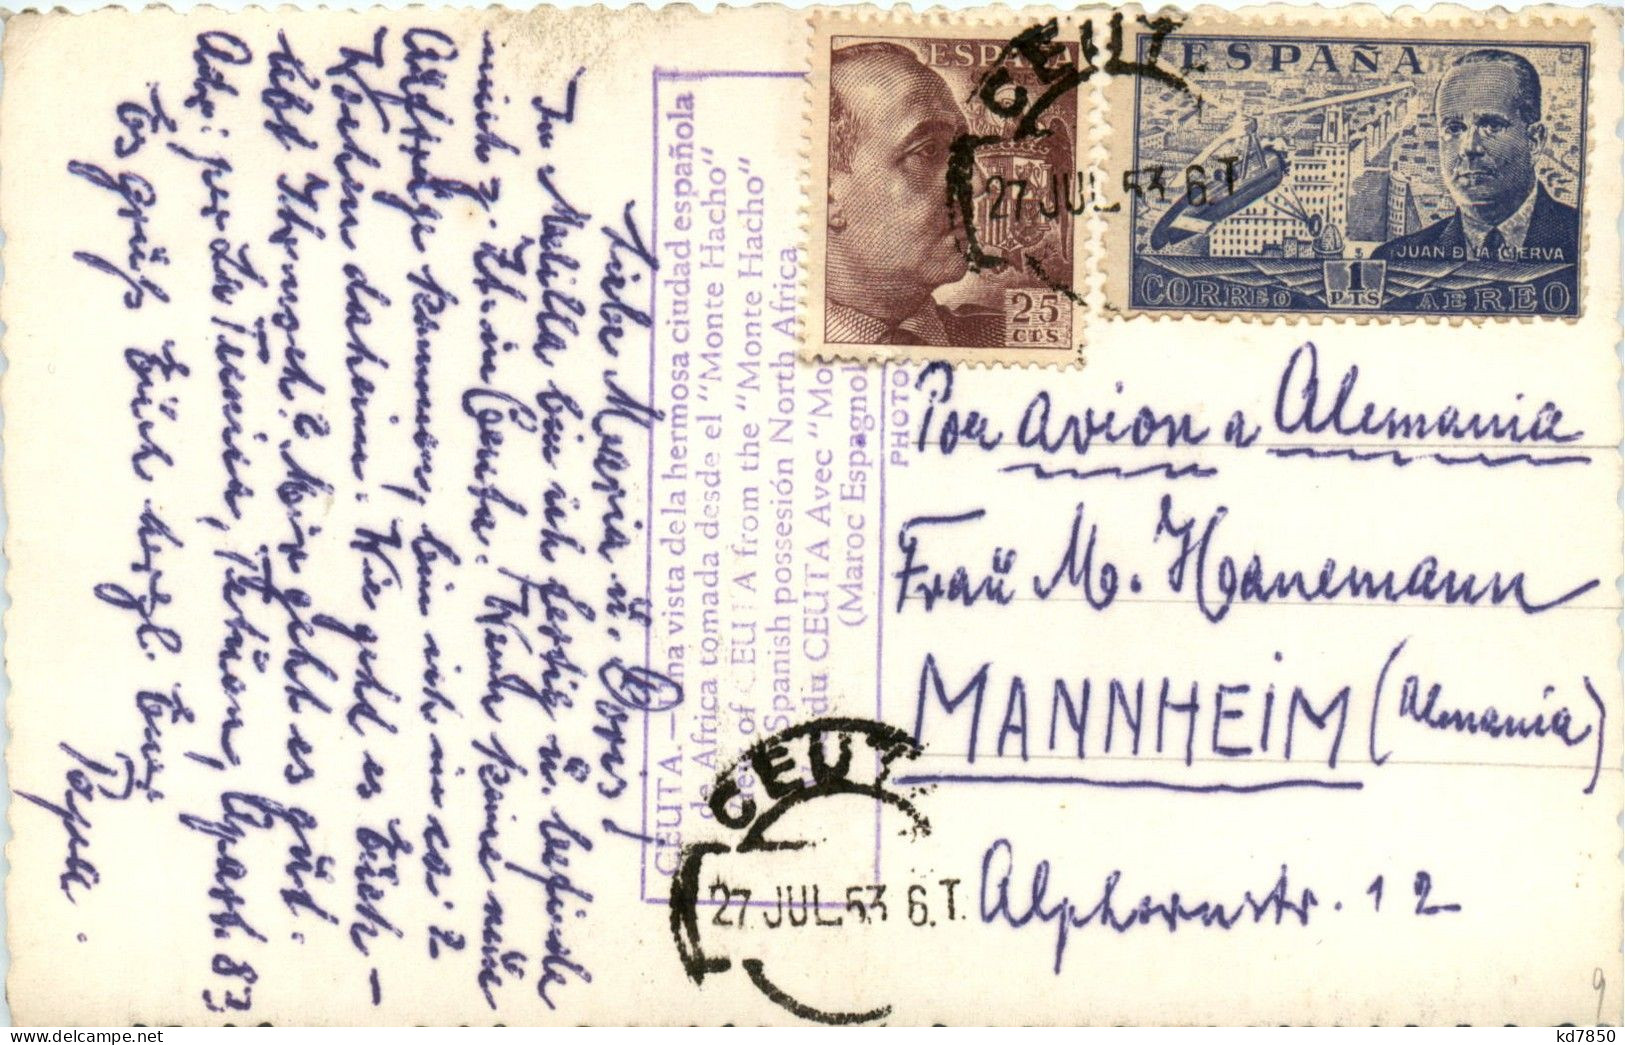 Liebe Maria u. Doris!
In Melilla bin ich fertig u. befinde
mich z. Zt. in Ceuta. Wenn keine neue
Aufträge kommen, bin ich in ca 2
Wochen daheim. Wie geht es Euch –
lebt Ihr noch? Mir geht es gut.
Adr: per La Tunisia, Tetuan, Apart. 83
Es grüßt Euch herzl. Euer
Papa.
CEUTA.—Una vista de la hermosa ciudad española
de Africa tomada desde el "Monte Hacho"
View of CEUTA from the "Monte Hacho"
Spanish possesión North Africa
du CEUTA Avec "Mo
(Maroc Espagnol
PHOTO
ESPAÑA
25
CTS
ESPAÑA
JUAN DE LA CIERVA
1
PTS
CORREO AEREO
CEUT
27 JUL.53 6.T
Por avion a Alemania
Frau M. Hanemann
MANNHEIM (Almania)
Alphornstr. 12
CEUT
27 JUL.53 6.T.
9
kd7850